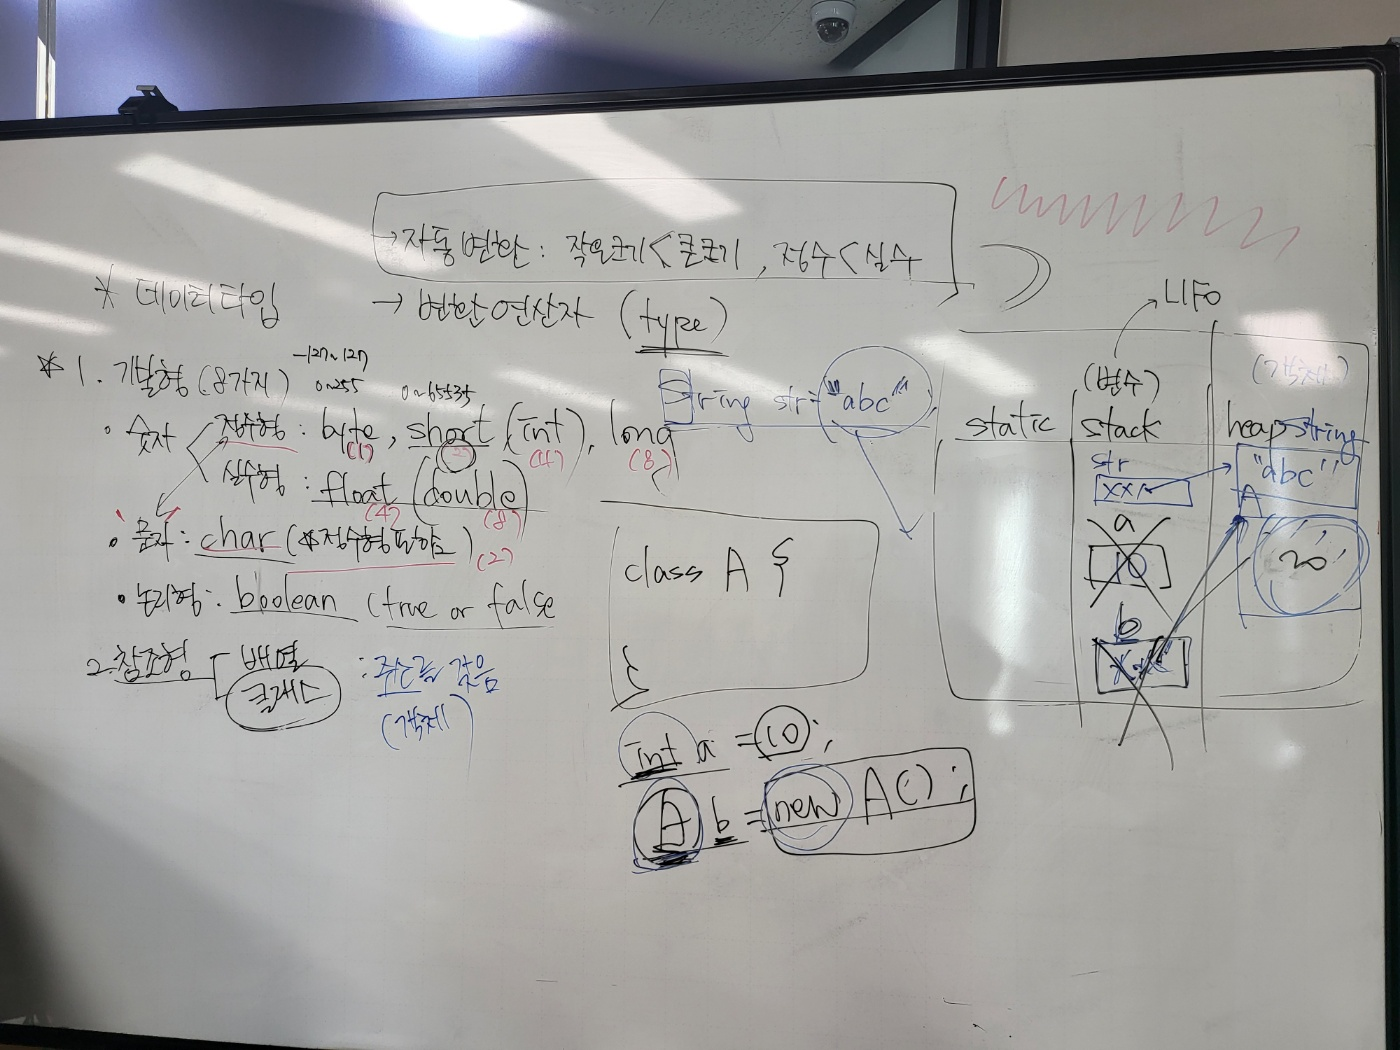 →자동변환 : 작은크기<큰크기, 정수<실수
* 데이터타입
→ 변환연산자 (type)
* 1. 기본형 (8가지)
-127~127
0~255
0~65535
· 숫자
정수형 : byte, short, (int), long
(1) (2) (4) (8)
실수형 : float (double)
(4) (8)
· 문자 : char (*정수형포함) (2)
· 논리형 : boolean (true or false
2. 참조형
배열
클래스
: 주소를 갖음
(객체)
String str="abc"
class A {
}
int a = 10;
A b = new A();
LIFO
(변수)
(객체)
static stack heap string
str
xxx
"abc"
a
10
A
20
b